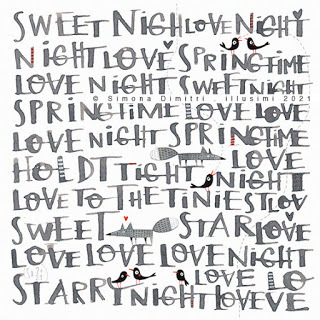 SWEET NIGH LOVE NIGHT
NIGHT LOVE SPRINGTIME
LOVE NIGHT SWEET NIGHT
© Simona Dimitri . illusimi 2021
SPRINGTIME LOVE LOVE
LOVE NIGHT SPRINGTIME
HOLDT TIGHT LOVE
NIGHT
LOVE TO THE TINIEST LOV
SWEET STAR LOVE
LOVE LOVE LOVE NIGHT
LOVE LO
STARRY NIGHT LOVE VE